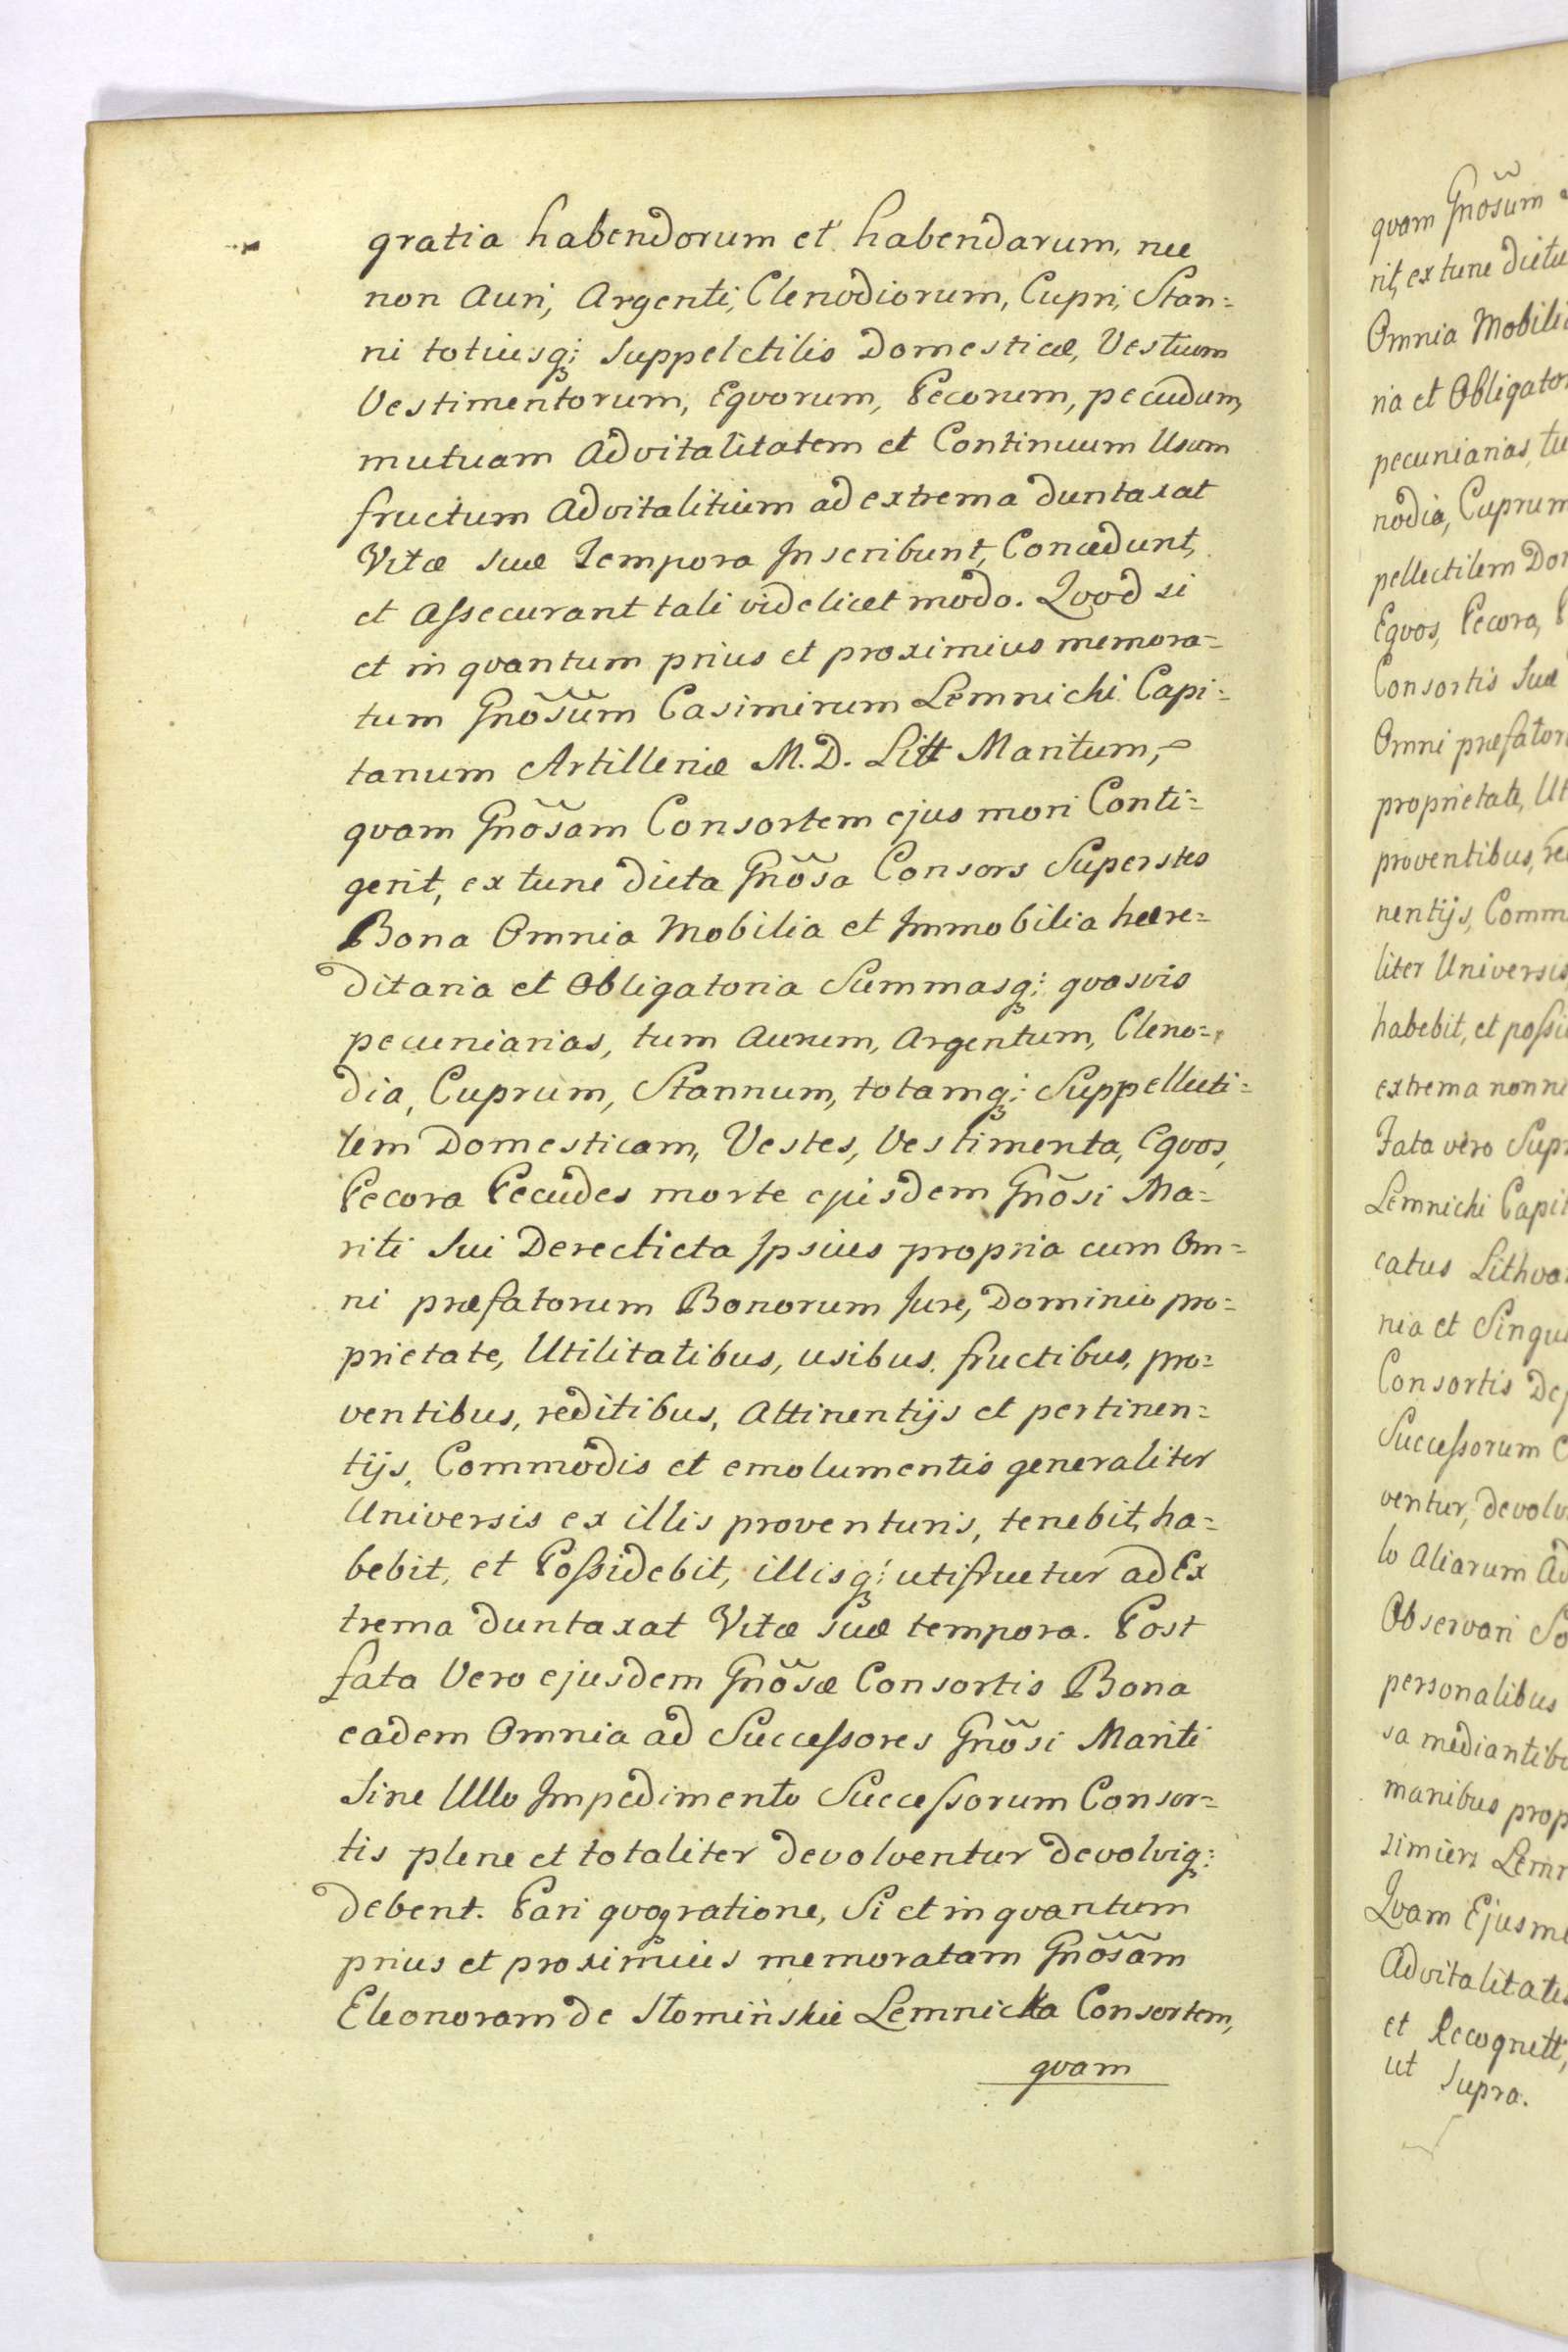 gratia habendorum et habendarum, nec
non Auri, Argenti, Clenodiorum, Cupri, Stan=
ni totiusq; Suppelctilis Domesticæ, Vestium
Vestimentorum, Eqvorum, Pecorum, pecudum,
mutuam Advitalitatem et Continuum Usum
fructum Advitalitium ad extrema duntaxat
Vitæ suæ Tempora Inscribunt, Concedunt,
et Assecurant tali videlicet modo. Qvod si
et in qvantum prius et proximius memora=
tum Gnõsũm Casimirum Lemnichi Capi=
tanum Artilleriæ M. D. Litt Maritum,
qvam Gnõsam Consortem ejus mori Conti=
gerit, ex tunc dicta Gnõsa Consors Superstes
Bona Omnia Mobilia et Immobilia hære=
ditaria et Obligatoria Summasq; qvasvis
pecuniarias, tum Aurum, Argentum, Cleno=
dia, Cuprum, Stannum, totamq; Suppellecti=
lem Domesticam, Vestes, Vestimenta, Eqvos,
Pecora Pecudes morte ejusdem Gnõsi Ma=
riti Sui Derecticta Ipsius propria cum Om=
ni præfatorum Bonorum Jure, Dominio pro=
prietate, Utilitatibus, usibus, fructibus, pro=
ventibus, reditibus, Attinentijs et pertinen=
tijs, Commodis et emolumentis generaliter
Universis ex illis proventuris, tenebit, ha=
bebit, et Possidebit, illisq; utifruetur ad Ex
trema duntaxat Vitæ suæ tempora. Post
fata Vero ejusdem Gnõsæ Consortis Bona
eadem Omnia ad Successores Gnõsi Mariti
Sine Ullo Impedimento Successorum Consor=
tis plene et totaliter devolventur devolviq;
debent. Pari qvoq ratione, Si et in qvantum
prius et proximius memoratam Gnõsam
Eleonoram de Słomińskie Lemnicka Consortem,
qvam
qvam Gnõsum
rit, ex tunc dictu
Omnia Mobilia
ria et Obligator
pecuniarias, tu
nodia, Cuprum
pellectilem Dom
Eqvos, Pecora, P
Consortis Suæ
Omni præfator
proprietate, Ut
proventibus, re
nentijs, Comm
liter Universis
habebit, et possi
extrema non ni
Fata vero Supr
Lemnichi Capit
catus Lithva
nia et Singu
Consortis De
Successorum C
ventur, devolv
lo Aliarum Ad
Observari So
personalibus
sa mediantibu
manibus prop
simiers Lemn
Qvam Ejusm
Advitalitatis
et Recognitt,
ut Supra.